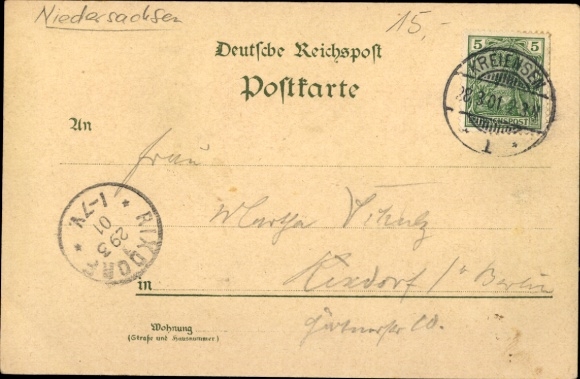 Niedersachsen
15,-
Deutsche Reichspost
Postkarte
5 5
REICHSPOST
KREIENSEN
28.3.01
1
An
Frau
Martha Schulz
Rixdorf / b Berlin
in
RIXDORF
29 3
01
1-7V.
Wohnung
(Straße und Hausnummer)